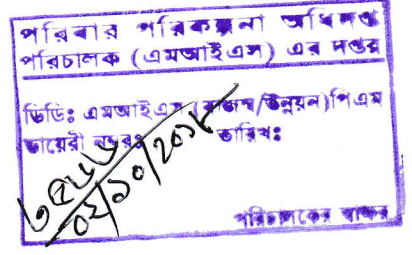 পরিবার পরিকল্পনা অধিদপ্তর
পরিচালক (এমআইএস) এর দপ্তর
ডিডিঃ এমআইএস (রাজস্ব/উন্নয়ন)পিএম
ডায়েরী নম্বরঃ তারিখঃ
০২/১০/২০১৮
পরিচালকের স্বাক্ষর